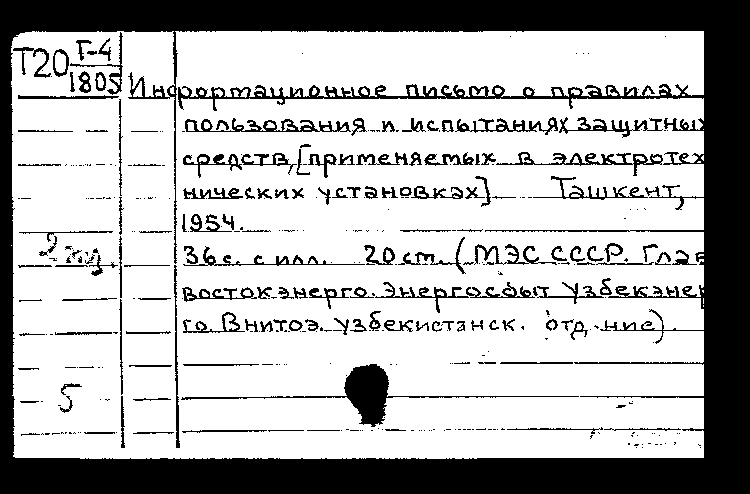 Т20 Г-4
1805
Информационное письмо о правилах
пользования и испытаниях защитных
средств, [применяемых в электротех
нических установках] Ташкент,
1954.
2 экз.
36 с. с илл. 20 ст. (МЭС СССР. Глав
востокэнерго. Энергосбыт Узбекэнер
го. Внитоэ. Узбекистанск. отд-ние).
5